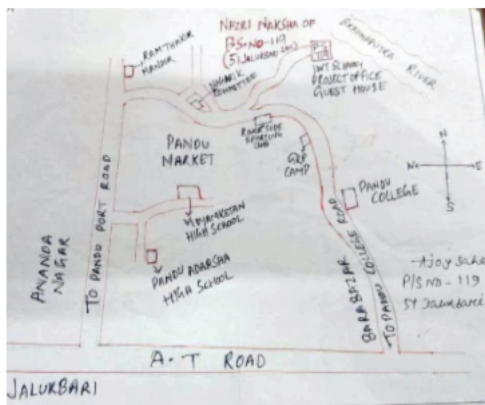 NAZRI NAKSHA OF
P.S.NO-119
(51 JALUKBARI LAC)
BRAHMAPUTRA RIVER
RAMTHAKUR
MANDIR
NAGARIK
COMMITTEE
P.S
119
PROJECT OFFICE
GUEST HOUSE
RIVER SIDE
SPORTING
CLUB
PANDU
MARKET
GRP
CAMP
N
W
E
S
PANDU
COLLEGE
VIDYANIKETAN
HIGH SCHOOL
PANDU ADARSHA
HIGH SCHOOL
ANANDA
NAGAR
TO PANDU PORT ROAD
BARABAZAR COLLEGE ROAD
TO PANDU
- Ajoy Saha
P/S NO - 119
51 Jalukbari
A.T ROAD
JALUKBARI